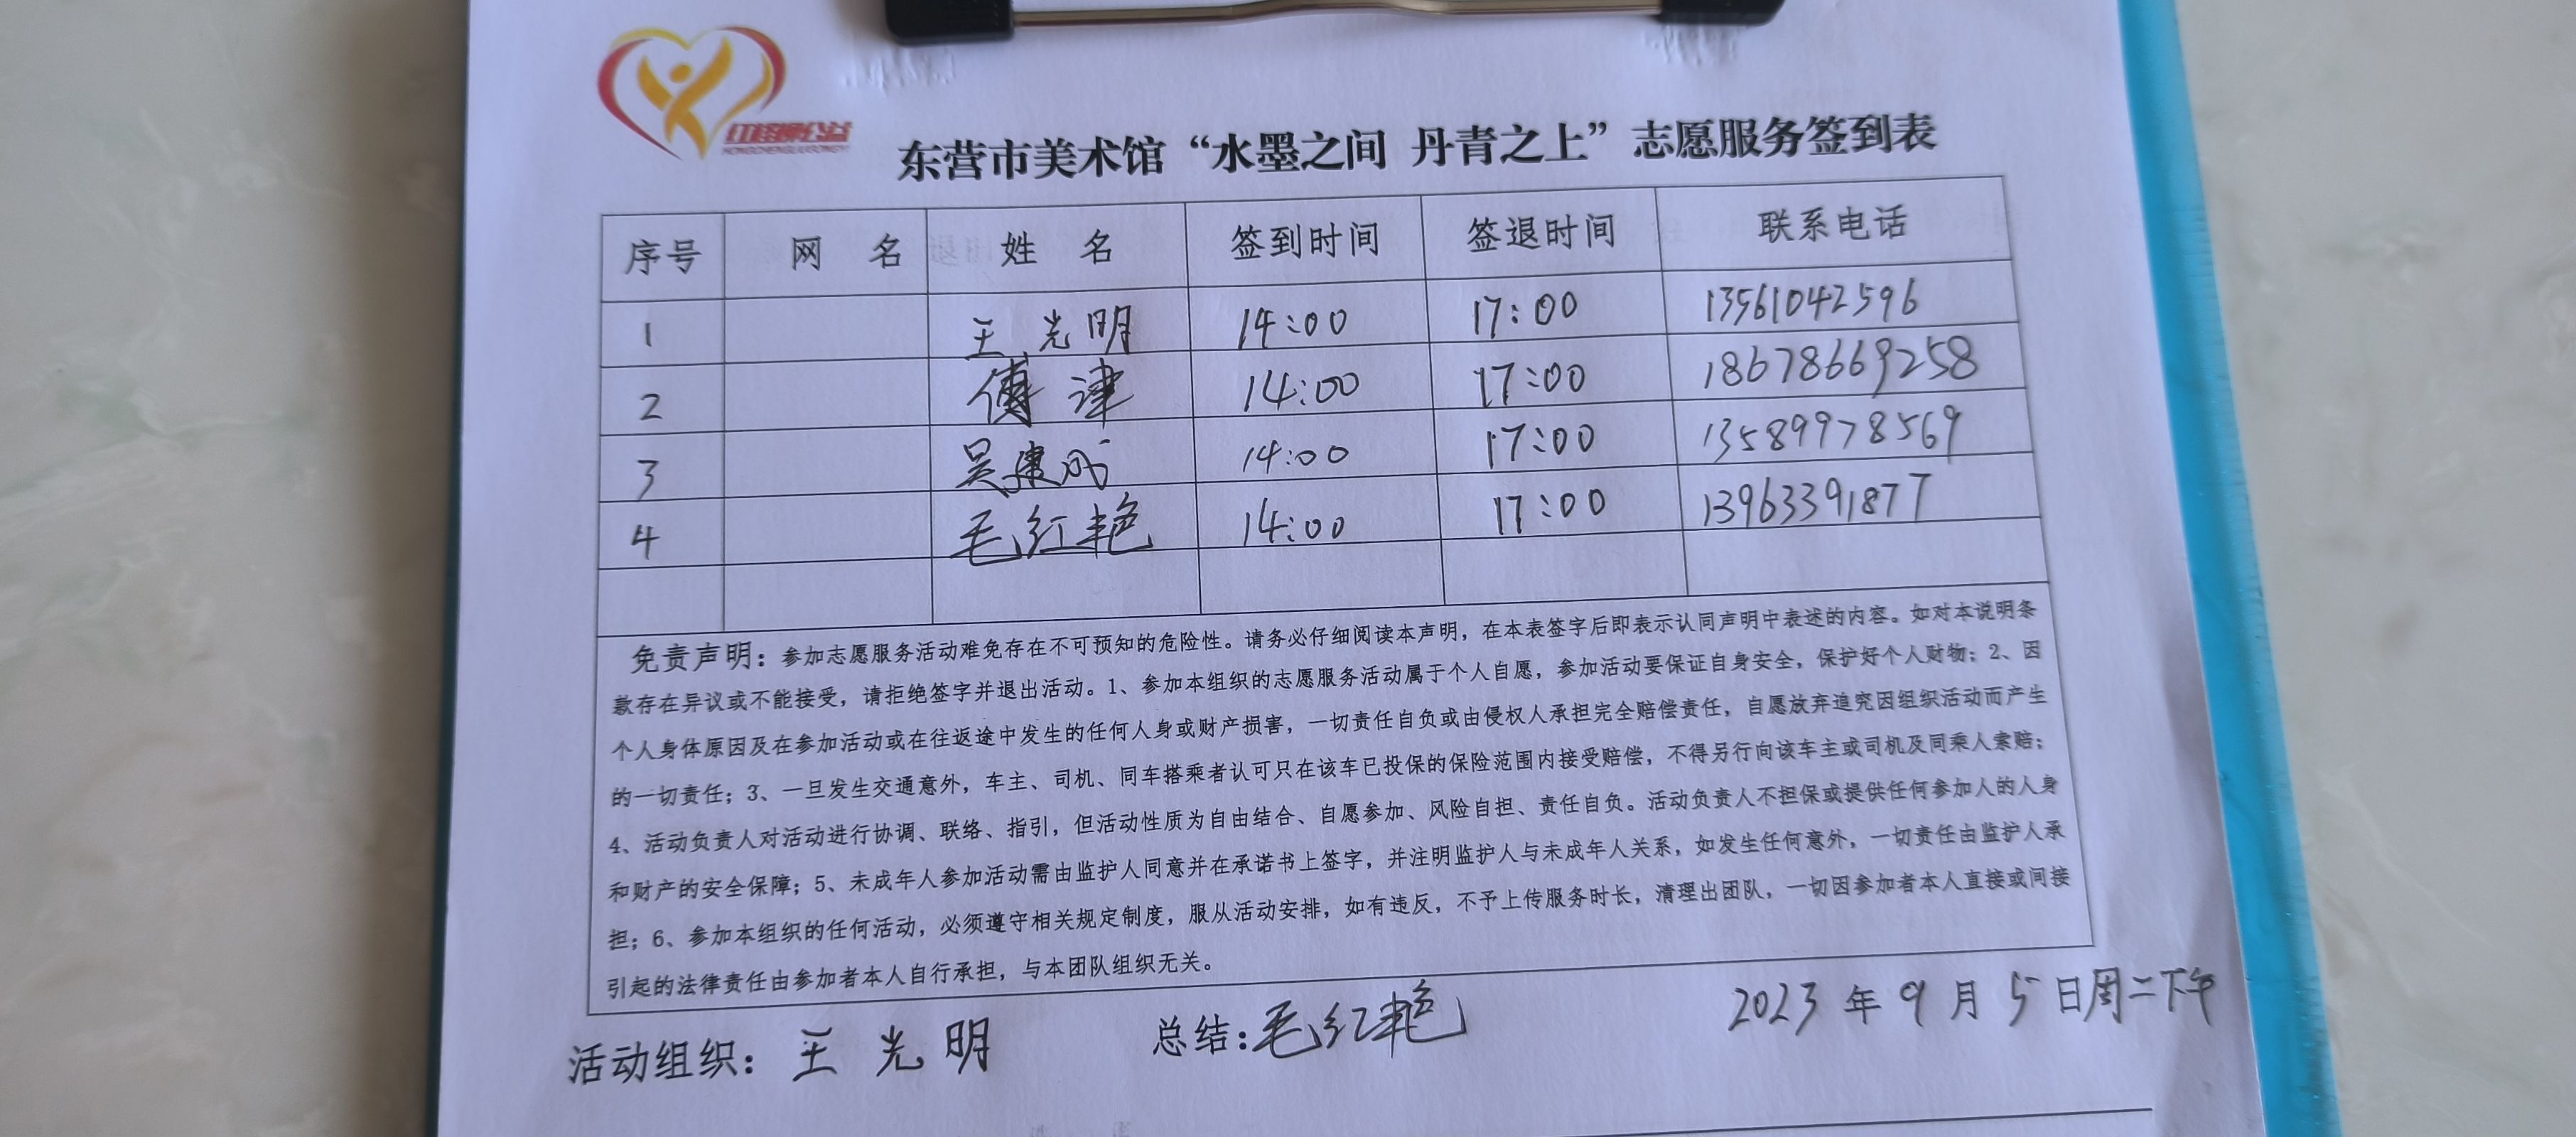 红橙绿公益
HONGCHENGLUGONGYI
东营市美术馆“水墨之间 丹青之上”志愿服务签到表
序号 网 名 姓 名 签到时间 签退时间 联系电话
1 王光明 14:00 17:00 13561042596
2 傅津 14:00 17:00 18678669258
3 吴建成 14:00 17:00 13589978569
4 毛红艳 14:00 17:00 13963391877
免责声明：参加志愿服务活动难免存在不可预知的危险性。请务必仔细阅读本声明，在本表签字后即表示认同声明中表述的内容。如对本说明条
款存在异议或不能接受，请拒绝签字并退出活动。1、参加本组织的志愿服务活动属于个人自愿，参加活动要保证自身安全，保护好个人财物；2、因
个人身体原因及在参加活动或在往返途中发生的任何人身或财产损害，一切责任自负或由侵权人承担完全赔偿责任，自愿放弃追究因组织活动而产生
的一切责任；3、一旦发生交通意外，车主、司机、同车搭乘者认可只在该车已投保的保险范围内接受赔偿，不得另行向该车主或司机及同乘人索赔；
4、活动负责人对活动进行协调、联络、指引，但活动性质为自由结合、自愿参加、风险自担、责任自负。活动负责人不担保或提供任何参加人的人身
和财产的安全保障；5、未成年人参加活动需由监护人同意并在承诺书上签字，并注明监护人与未成年人关系，如发生任何意外，一切责任由监护人承
担；6、参加本组织的任何活动，必须遵守相关规定制度，服从活动安排，如有违反，不予上传服务时长，清理出团队，一切因参加者本人直接或间接
引起的法律责任由参加者本人自行承担，与本团队组织无关。
活动组织：王光明 总结：毛红艳 2023年9月5日周二下午